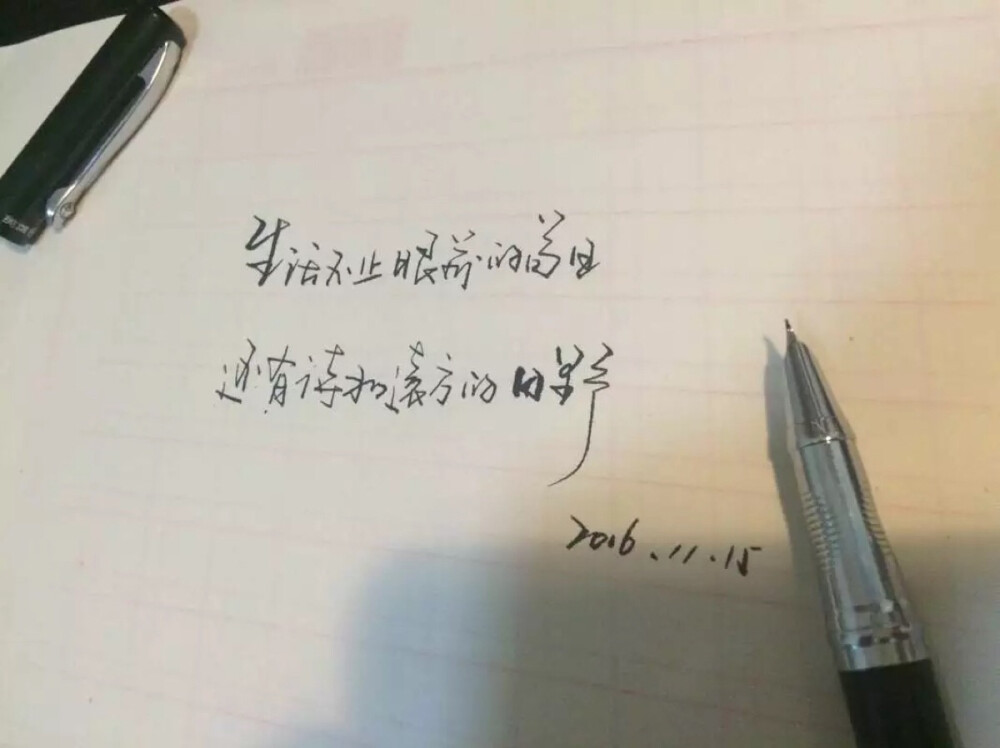 生活不止眼前的苟且
还有诗和远方的田野
2016.11.15